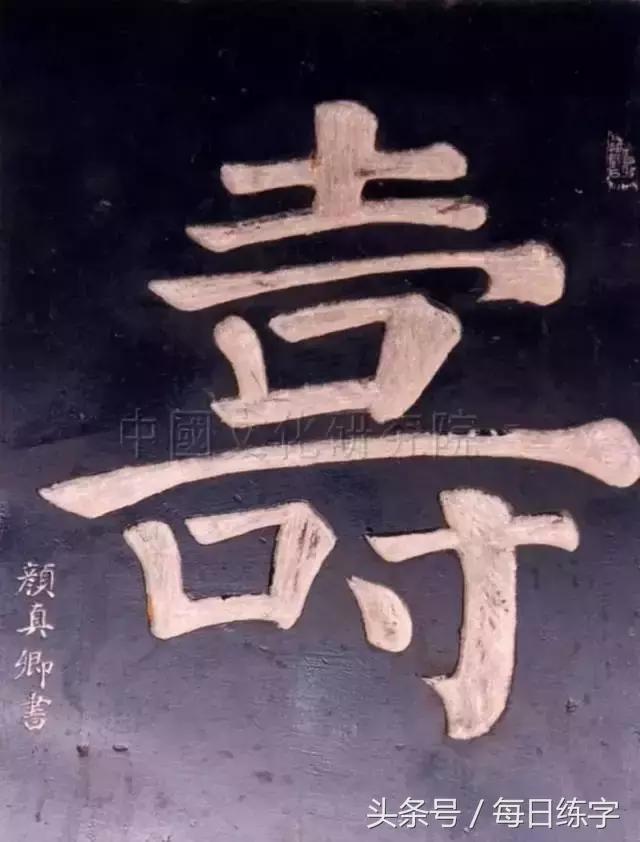 壽
中國文化研究院
顏真卿書
头条号 / 每日练字